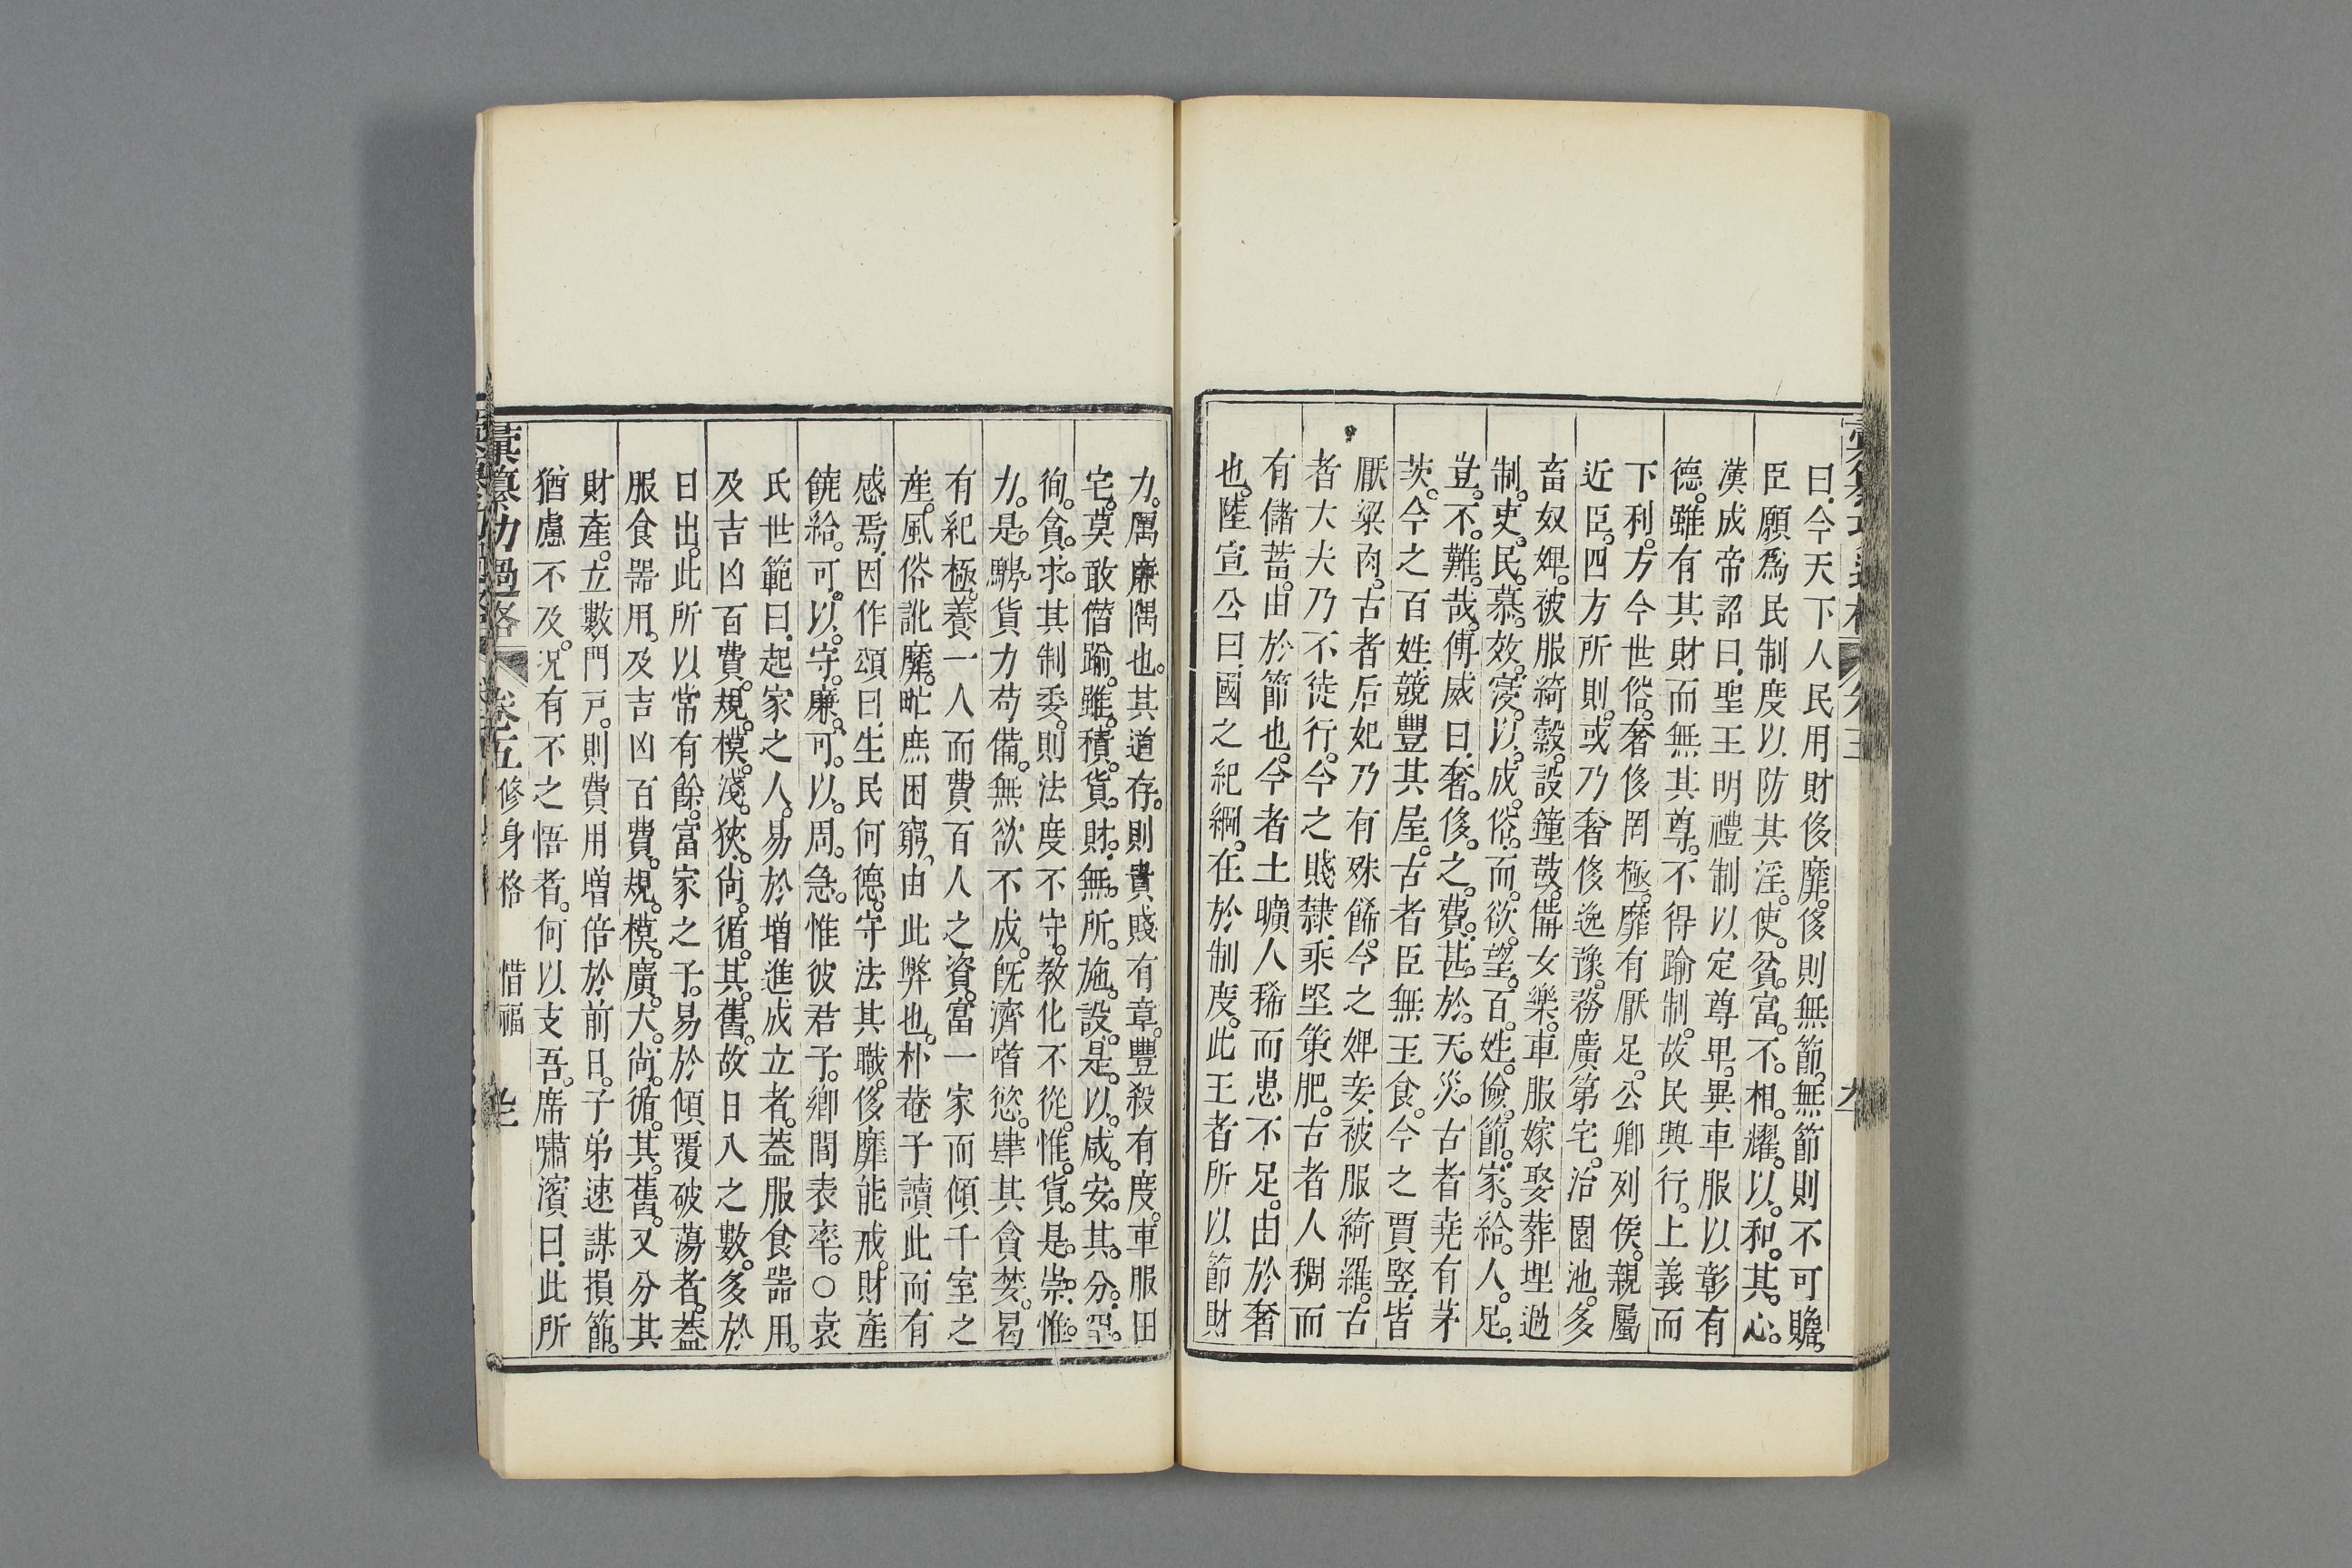 曰.今天下人民用財侈靡。侈則無節。無節則不可贍。
臣願爲民制度以防其淫。使。貧。富。不。相。耀。以。和。其。心。
漢成帝詔曰.聖王明禮制以定尊卑。異車服以彰有
德。雖有其財而無其尊。不得踰制。故民興行。上義而
下利。方今世俗。奢侈罔極。靡有厭足。公卿列侯。親屬
近臣。四方所則。或乃奢侈逸豫。務廣第宅。治園池。多
畜奴婢。被服綺縠。設鐘鼓。備女樂。車服嫁娶葬埋過
制。吏。民。慕。效。寖。以。成。俗。而。欲。望。百。姓。儉。節。家。給。人。足。
豈。不。難。哉。傅咸曰.奢。侈。之。費。甚。於。天。災。古者堯有茅
茨。今之百姓.競豐其屋。古者臣無玉食。今之賈竪.皆
厭粱肉。古者后妃乃有殊餙。今之婢妾.被服綺羅。古
者大夫乃不徒行。今之賤隸.乘堅策肥。古者人稠而
有儲蓄。由於節也。今者土曠人稀而患不足。由於奢
也。陸宣公曰.國之紀綱。在於制度。此王者所以節財
力。厲廉隅也。其道存。則貴賤有章。豐殺有度。車服田
宅。莫敢僭踰。雖。積。貨。財。無。所。施。設。是。以。咸。安。其。分。罕。
徇。貪。求。其制委。則法度不守。教化不從。惟。貨。是。崇。惟。
力。是。騁。貨力苟備。無欲不成。旣濟嗜慾。肆其貪婪。曷
有紀極。養一人而費百人之資。富一家而傾千室之
產。風俗訛靡。甿庶困窮。由此弊也。朴菴子讀此而有
感焉.因作頌曰.生民何德。守法其職。侈靡能戒。財產
饒給。可。以。守。廉。可。以。周。急。惟彼君子。鄉閭表率。○袁
氏世範曰.起家之人。易於增進成立者。葢服食噐用。
及吉凶百費。規。模。淺。狹。尙。循。其。舊。故日入之數。多於
日出。此所以常有餘。富家之子。易於傾覆破蕩者。葢
服食噐用。及吉凶百費。規。模。廣。大。尙。循。其。舊。又分其
財產。立數門戸。則費用增倍於前日。子弟速謀損節。
猶慮不及。况有不之悟者。何以支吾。席嘯濱曰.此所
彙纂功過格 卷五 修身格 惜福